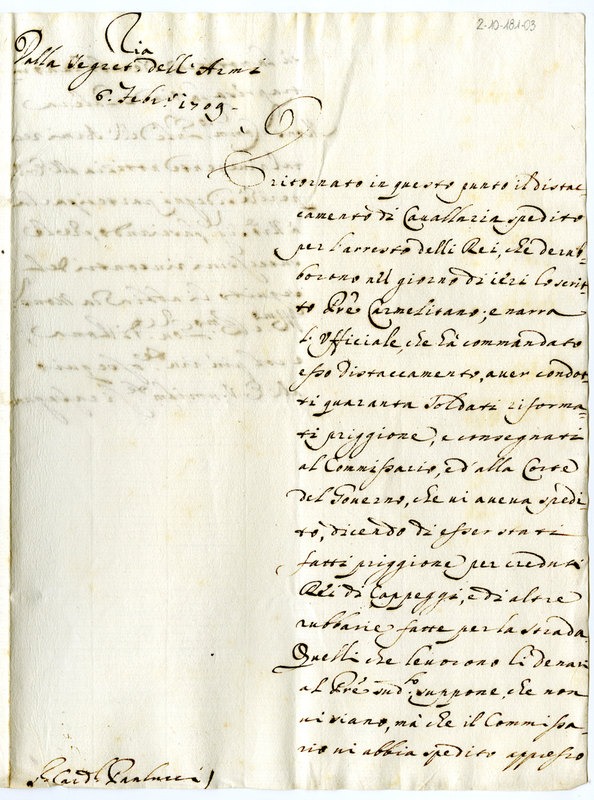 2-10-181-03
Dalla Segret.ria dell'Armi
6. Febr.o 1709.
È ritornato in questo punto il distac=
camento di Cavallaria spedito
per l'arresto delli Rei, che derub=
borono nel giorno di ieri lo scrit=
to Prê Carmelitano; e narra
l'Ufficiale, che hà commandato
esso Distaccamento, aver condot=
ti quaranta Soldati riforma=
ti priggione, e consegnati
al Commissario, ed'alla Corte
del Governo, che vi aveva spedi=
to, dicendo di esser stati
fatti priggione per creduti
Rei di Cappeggi, e di altre
rubbarie fatte per la strada.
Quelli che levorono li denari
al Prê sud.to suppone, che non
vi siano, mà che il Commissa=
rio vi abbia spedito appresso
Card.l Paulucci